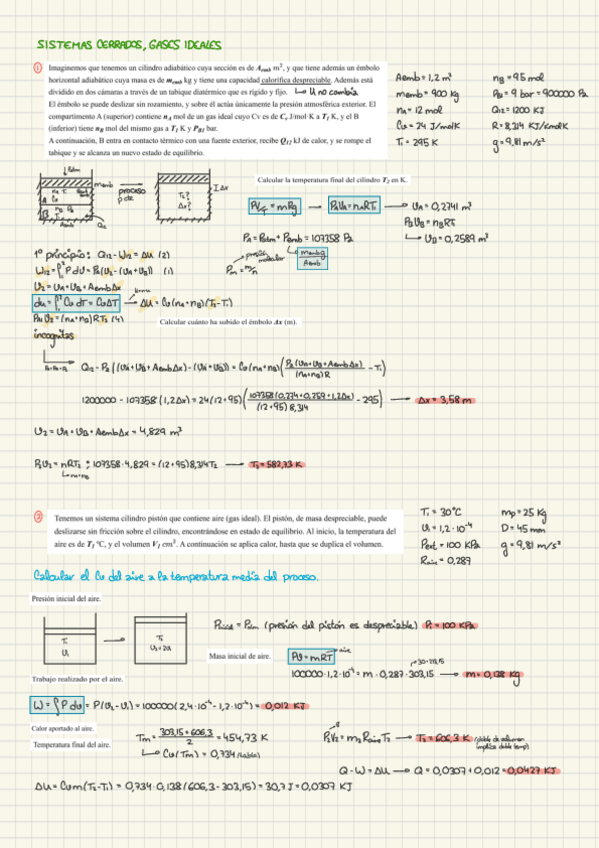 SISTEMAS CERRADOS, GASES IDEALES
① Imaginemos que tenemos un cilindro adiabático cuya sección es de A_emb m², y que tiene además un émbolo
horizontal adiabático cuya masa es de m_emb kg y tiene una capacidad calorífica despreciable. Además está
dividido en dos cámaras a través de un tabique diatérmico que es rígido y fijo. ↳ U no cambia
El émbolo se puede deslizar sin rozamiento, y sobre él actúa únicamente la presión atmosférica exterior. El
compartimento A (superior) contiene n_A mol de un gas ideal cuyo Cv es de C_v J/mol·K a T_1 K, y el B
(inferior) tiene n_B mol del mismo gas a T_1 K y P_B1 bar.
A continuación, B entra en contacto térmico con una fuente exterior, recibe Q_12 kJ de calor, y se rompe el
tabique y se alcanza un nuevo estado de equilibrio.
Aemb = 1,2 m²
memb = 900 Kg
nA = 12 mol
Cv = 24 J/molK
T1 = 295 K
nB = 95 mol
PB = 9 bar = 900000 Pa
Q12 = 1200 KJ
R = 8,314 KJ/KmolK
g = 9,81 m/s²
↓Patm
memb
A
B
Q12
proceso
p cte
T2?
Δx?
I Δx
Calcular la temperatura final del cilindro T_2 en K.
PAVA = nART1 → VA = 0,2741 m³
PBVB = nBRT1
↳ VB = 0,2589 m³
PA = Patm + Pemb = 107358 Pa
memb·g
Aemb
1º principio: Q12 - W12 = ΔU (2)
W12 = ∫P dV = P2(V2 - (VA + VB)) (1)
V2 = VA + VB + AembΔx
du = ∫Cv dT = CvΔT → ΔU = Cv(nA + nB)(T2 - T1)
P2V2 = (nA + nB)RT2 (4)
incognitas
Calcular cuánto ha subido el émbolo Δx (m).
Q12 - P2((VA + VB + AembΔx) - (VA + VB)) = Cv(nA + nB)(P2(VA + VB + AembΔx)/(nA + nB)R - T1)
1200000 - 107358(1,2Δx) = 24(12 + 95)(107358(0,274 + 0,259 + 1,2Δx)/(12 + 95)8,314 - 295) → Δx = 3,58 m
V2 = VA + VB + AembΔx = 4,829 m³
P2V2 = nRT2 ; 107358·4,829 = (12 + 95)8,314T2 → T2 = 582,73 K
↳ nA + nB
② Tenemos un sistema cilindro pistón que contiene aire (gas ideal). El pistón, de masa despreciable, puede
deslizarse sin fricción sobre el cilindro, encontrándose en estado de equilibrio. Al inicio, la temperatura del
aire es de T_1 ºC, y el volumen V_1 cm³. A continuación se aplica calor, hasta que se duplica el volumen.
T1 = 30°C
V1 = 1,2·10⁻⁴
Pext = 100 KPa
Raire = 0,287
mp = 25 Kg
D = 45 mm
g = 9,81 m/s²
Calcular el Cv del aire a la temperatura media del proceso.
Presión inicial del aire.
T1
V1
→
T2
V2 = 2V1
Pinicial = Patm (presión del pistón es despreciable) P1 = 100 KPa
Masa inicial de aire. PV = mRT aire
100000·1,2·10⁻⁴ = m·0,287·303,15 → m = 0,138 Kg
30+273,15
Trabajo realizado por el aire.
W = ∫P dv = P(V2 - V1) = 100000(2,4·10⁻⁴ - 1,2·10⁻⁴) = 0,012 KJ
Calor aportado al aire.
Temperatura final del aire.
Tm = 303,15 + 606,3 / 2 = 454,73 K
↳ Cv(Tm) = 0,734 (tabla)
P2V2 = m2RaireT2 → T2 = 606,3 K (doble de volumen implica doble temp)
Q - W = ΔU → Q = 0,0307 + 0,012 = 0,0427 KJ
ΔU = Cvm(T2 - T1) = 0,734·0,138(606,3 - 303,15) = 30,7 J = 0,0307 KJ